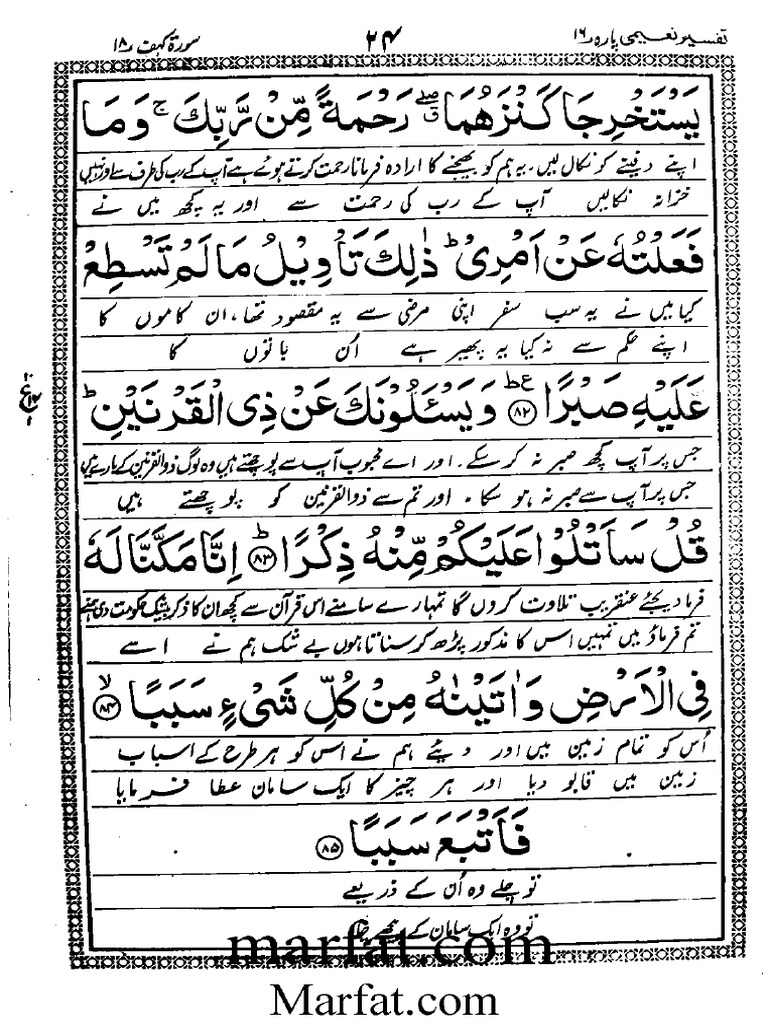 تفسیر نعیمی پارہ ۱۶ ۲۴ سورۃ کہف ۱۸
يَسْتَخْرِجَا كَنْزَهُمَا ۖق رَحْمَةً مِّنْ رَّبِّكَ ۚ وَمَا
اپنے دفینے کو نکال لیں۔ یہ ہم کو بھیجنے کا ارادہ فرمانا رحمت کرتے ہوئے ہے آپ کے رب کی طرف سے اور نہیں
خزانہ نکالیں آپ کے رب کی رحمت سے اور یہ کچھ میں نے
فَعَلْتُهٗ عَنْ اَمْرِىْ ؕ ذٰلِكَ تَاْوِيْلُ مَا لَمْ تَسْطِعْ
کیا میں نے یہ سب سفر اپنی مرضی سے یہ مقصود تھا، ان کاموں کا
اپنے حکم سے نہ کیا یہ پھیر ہے اُن باتوں کا
عَلَيْهِ صَبْرًا ؕع ۸۲ وَيَسْـَٔلُوْنَكَ عَنْ ذِى الْقَرْنَيْنِ ؕ
جس پر آپ کچھ صبر نہ کر سکے۔ اور اے محبوب آپ سے پوچھتے ہیں وہ لوگ ذوالقرنین کے بارے میں
جس پر آپ سے صبر نہ ہو سکا۔ اور تم سے ذوالقرنین کو پوچھتے ہیں
قُلْ سَاَتْلُوْا عَلَيْكُمْ مِّنْهُ ذِكْرًا ؕ ۸۳ اِنَّا مَكَّنَّا لَهٗ
فرما دیجئے عنقریب تلاوت کروں گا تمہارے سامنے اس قرآن سے کچھ ان کا ذکر بیشک حکومت دی ہمنے
تم فرماؤ میں تمہیں اس کا مذکور پڑھ کر سناتا ہوں بے شک ہم نے اسے
فِى الْاَرْضِ وَاٰتَيْنٰهُ مِنْ كُلِّ شَىْءٍ سَبَبًا ۙ ۸۴
اُس کو تمام زمین میں اور دیئے ہم نے اس کو ہر طرح کے اسباب
زمین میں قابو دیا اور ہر چیز کا ایک سامان عطا فرمایا
فَاَتْبَعَ سَبَبًا ۸۵
تو چلے وہ اُن کے ذریعے
تو وہ ایک سامان کے پیچھے چلا
marfat.com
Marfat.com